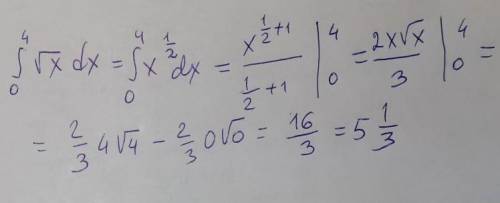 ∫₀⁴ √x dx = ∫₀⁴ x^(1/2) dx = x^(1/2 +1) / (1/2 +1) |₀⁴ = 2x√x / 3 |₀⁴ =
= 2/3 4√4 − 2/3 0√0 = 16/3 = 5 1/3